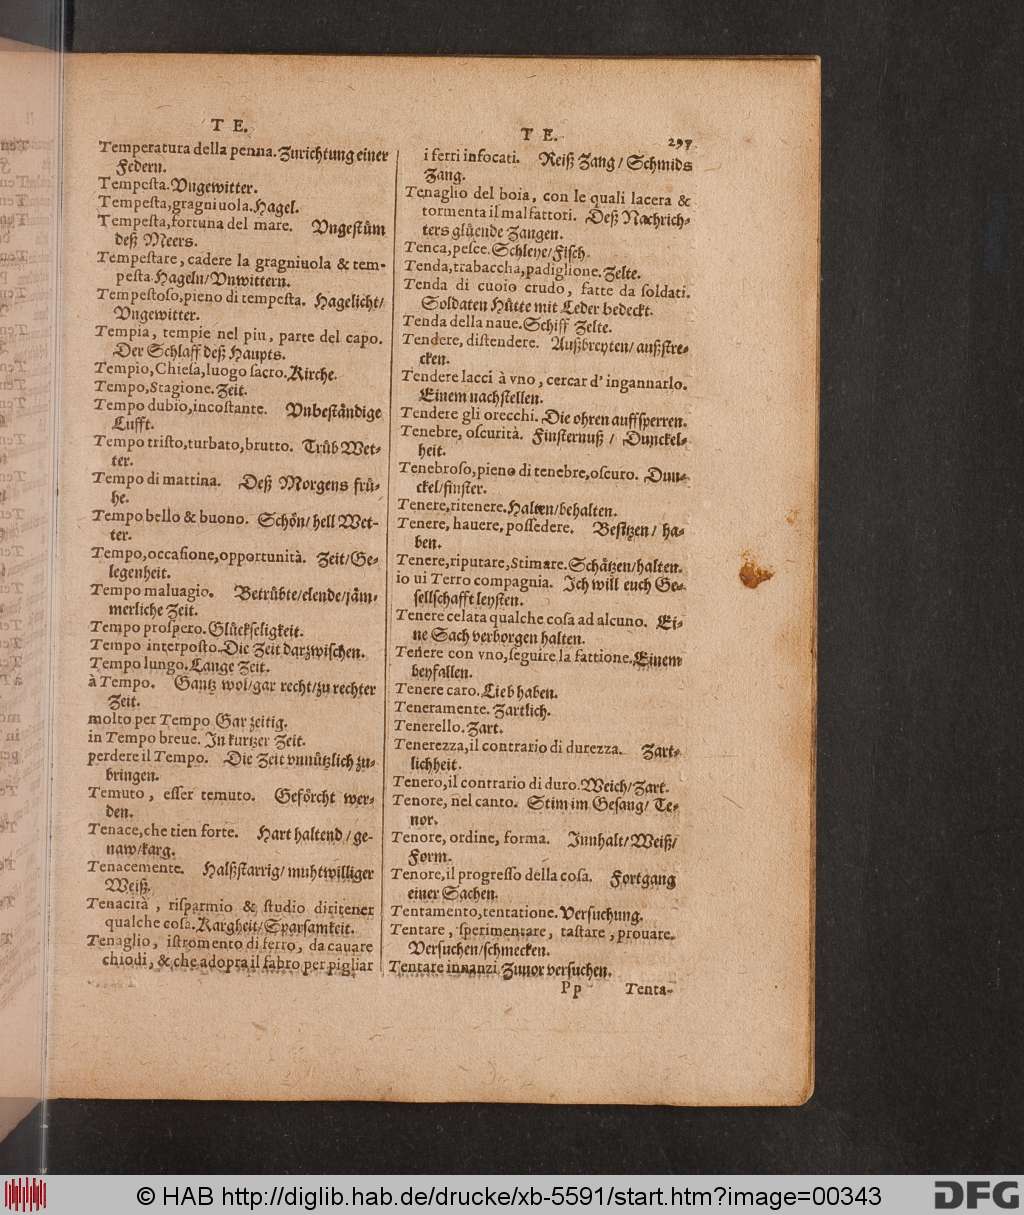 T E.
Temperatura della penna. Zurichtung einer
Federn.
Tempeſta. Vngewitter.
Tempeſta, gragniuola. Hagel.
Tempeſta, fortuna del mare. Vngeſtuͤm
deß Meers.
Tempeſtare, cadere la gragniuola & tem-
peſta. Hageln/Vnwittern.
Tempeſtoſo, pieno di tempeſta. Hagelicht/
Vngewitter.
Tempia, tempie nel piu, parte del capo.
Der Schlaff deß Haupts.
Tempio, Chieſa, luogo ſacro. Kirche.
Tempo, Stagione. Zeit.
Tempo dubio, incoſtante. Vnbeſtaͤndige
Lufft.
Tempo triſto, turbato, brutto. Truͤb Wet-
ter.
Tempo di mattina. Deß Morgens fruͤ-
he.
Tempo bello & buono. Schoͤn/hell Wet-
ter.
Tempo, occaſione, opportunità. Zeit/Ge-
legenheit.
Tempo maluagio. Betruͤbte/elende/jaͤm-
merliche Zeit.
Tempo proſpero. Gluͤckſeligkeit.
Tempo interpoſto. Die Zeit darzwiſchen.
Tempo lungo. Lange Zeit.
à Tempo. Gantz wol/gar recht/zu rechter
Zeit.
molto per Tempo. Gar zeitig.
in Tempo breue. In kurtzer Zeit.
perdere il Tempo. Die Zeit vnnuͤtzlich zu-
bringen.
Temuto, eſſer temuto. Gefoͤrcht wer-
den.
Tenace, che tien forte. Hart haltend/ge-
naw/karg.
Tenacemente. Halßſtarrig/muhtwilliger
Weiß.
Tenacità, riſparmio & ſtudio di ritener
qualche coſa. Kargheit/Sparſamkeit.
Tenaglio, iſtromento di ferro, da cauare
chiodi, & che adopra il fabro per pigliar
T E. 297
i ferri infocati. Reiß Zang/Schmids
Zang.
Tenaglio del boia, con le quali lacera &
tormenta il malfattori. Deß Nachrich-
ters gluͤende Zangen.
Tenca, peſce. Schleye/Fiſch.
Tenda, trabaccha, padiglione. Zelte.
Tenda di cuoio crudo, fatte da ſoldati.
Soldaten Huͤtte mit Leder bedeckt.
Tenda della naue. Schiff Zelte.
Tendere, diſtendere. Außbreyten/außſtre-
cken.
Tendere lacci à vno, cercar d'ingannarlo.
Einem nachſtellen.
Tendere gli orecchi. Die ohren auffſperren.
Tenebre, oſcurità. Finſternuß/Dunckel-
heit.
Tenebroſo, pieno di tenebre, oſcuro. Dun-
ckel/finſter.
Tenere, ritenere. Halten/behalten.
Tenere, hauere, poſſedere. Beſitzen/ha-
ben.
Tenere, riputare, Stimare. Schaͤtzen/halten.
io ui Terro compagnia. Ich will euch Ge-
ſellſchafft leyſten.
Tenere celata qualche coſa ad alcuno. Ei-
ne Sach verborgen halten.
Tenere con vno, ſeguire la fattione. Einem
beyfallen.
Tenere caro. Lieb haben.
Teneramente. Zartlich.
Tenerello. Zart.
Tenerezza, il contrario di durezza. Zart-
lichheit.
Tenero, il contrario di duro. Weich/Zart.
Tenore, nel canto. Stim im Geſang/Te-
nor.
Tenore, ordine, forma. Innhalt/Weiß/
Form.
Tenore, il progreſſo della coſa. Fortgang
einer Sachen.
Tentamento, tentatione. Verſuchung.
Tentare, ſperimentare, taſtare, prouare.
Verſuchen/ſchmecken.
Tentare innanzi. Zuuor verſuchen.
Pp Tenta-
© HAB http://diglib.hab.de/drucke/xb-5591/start.htm?image=00343
DFG